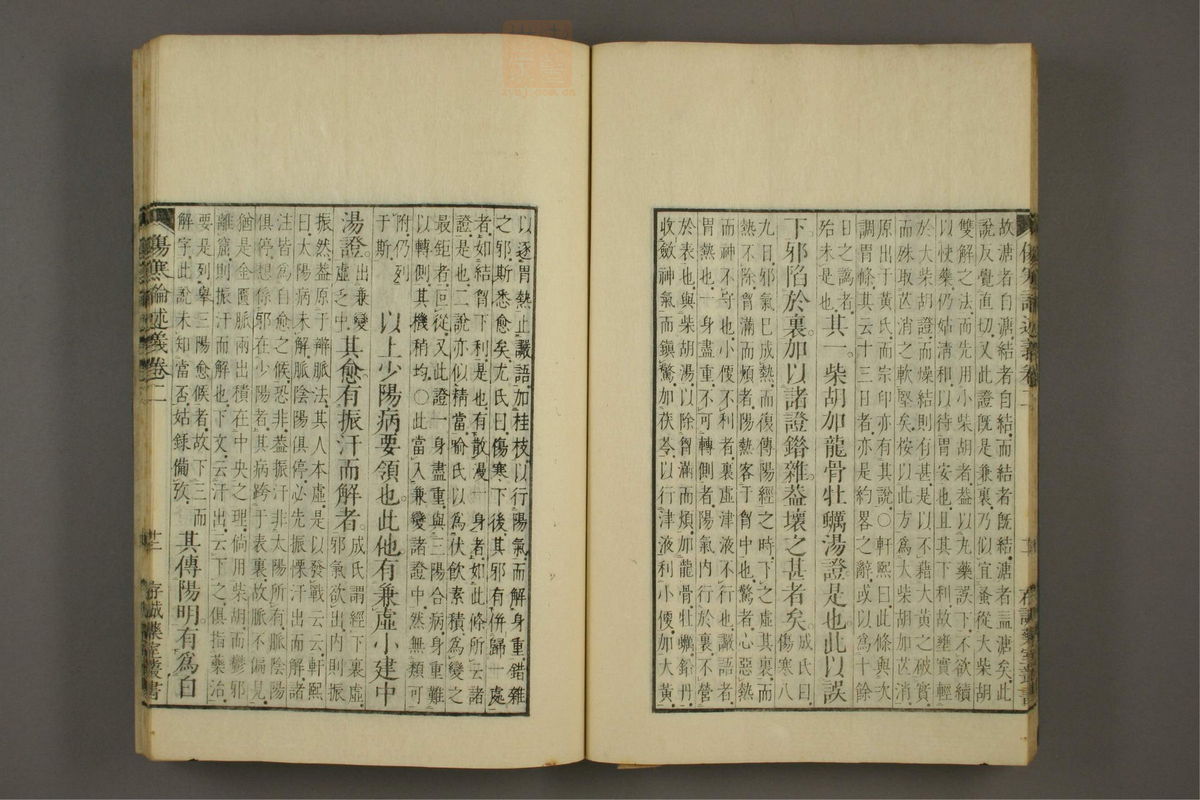 故溏者自溏結者自結而結者既結溏者益溏矣此
說反覺直切又此證既是兼裏乃似宜蚤從大柴胡
雙解之法而先用小柴胡者蓋以九藥誤下不欲續
以快藥仍姑清和以待胃安也且其下利故壅實輕
於大柴胡證而燥結則有甚是以不藉大黃之破實
而殊取芒消之軟堅矣桉以此方爲大柴胡加芒消
原出于黃氏而宗印亦有其說○軒熙曰此條與次
調胃條其云十三日者亦是約畧之辭或以爲十餘
日之譌者
殆未是也其一柴胡加龍骨牡蠣湯證是也此以誤
下邪陷於裏加以諸證錯雜蓋壞之甚者矣成氏曰
傷寒八
九日邪氣已成熱而復傳陽經之時下之虛其裏而
熱不除胷滿而煩者陽熱客于胷中也驚者心惡熱
而神不守也小便不利者裏虛津液不行也讝語者
胃熱也一身盡重不可轉側者陽氣內行於裏不營
於表也與柴胡湯以除胷滿而煩加龍骨牡蠣鉛丹
收斂神氣而鎮驚加茯苓以行津液利小便加大黃
以逐胃熱止讝語加桂枝以行陽氣而解身重錯雜
之邪斯悉愈矣尤氏曰傷寒下後其邪有併歸一處
者如結胷下利是也有散漫一身者如此條所云諸
證是也二說亦似精當喻氏以爲伏飲素積爲變之
最鉅者叵從又此證一身盡重與三陽合病身重難
以轉側其機稍均○此當入兼變諸證中然無類可
附仍列
于斯以上少陽病要領也此他有兼虛小建中
湯證出兼變
虛之中其愈有振汗而解者成氏謂經下裏虛
邪氣欲出內則振
振然蓋原于辨脈法其人本虛是以發戰云云軒熙
曰太陽病未解脈陰陽俱停必先振慄汗出而解者
注皆爲自愈之候恐非蓋振汗非太陽所有脈陰陽
俱停想係邪在少陽者其病跨于表裏故脈不偏見
猶是金匱脈兩出積在中央之理倘用柴胡而鬱邪
離窟則振汗而解也下文云汗出云下之俱指藥治
要是列舉三陽愈候者故下三而
解字此說未知當否姑錄備攷其傳陽明有爲白
傷寒論述義卷二
廿二
存誠藥室叢書